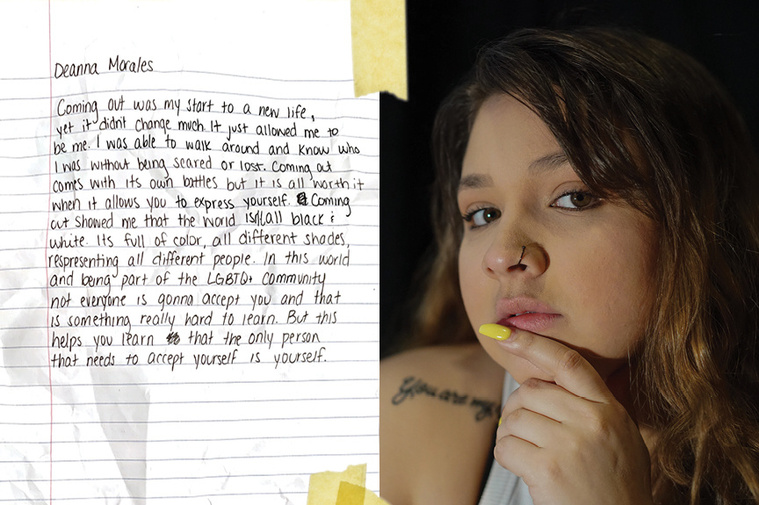 Deanna Morales
Coming out was my start to a new life,
yet it didnt change much. It just allowed me to
be me. I was able to walk around and know who
I was without being scared or lost. Coming out
comes with its own battles but it is all worth it
when it allows you to express yourself. Coming
out showed me that the world isn't all black &
white. Its full of color, all different shades,
respresenting all different people. In this world
and being part of the LGBTQ+ community
not everyone is gonna accept you and that
is something really hard to learn. But this
helps you learn that the only person
that needs to accept yourself is yourself.
You are my